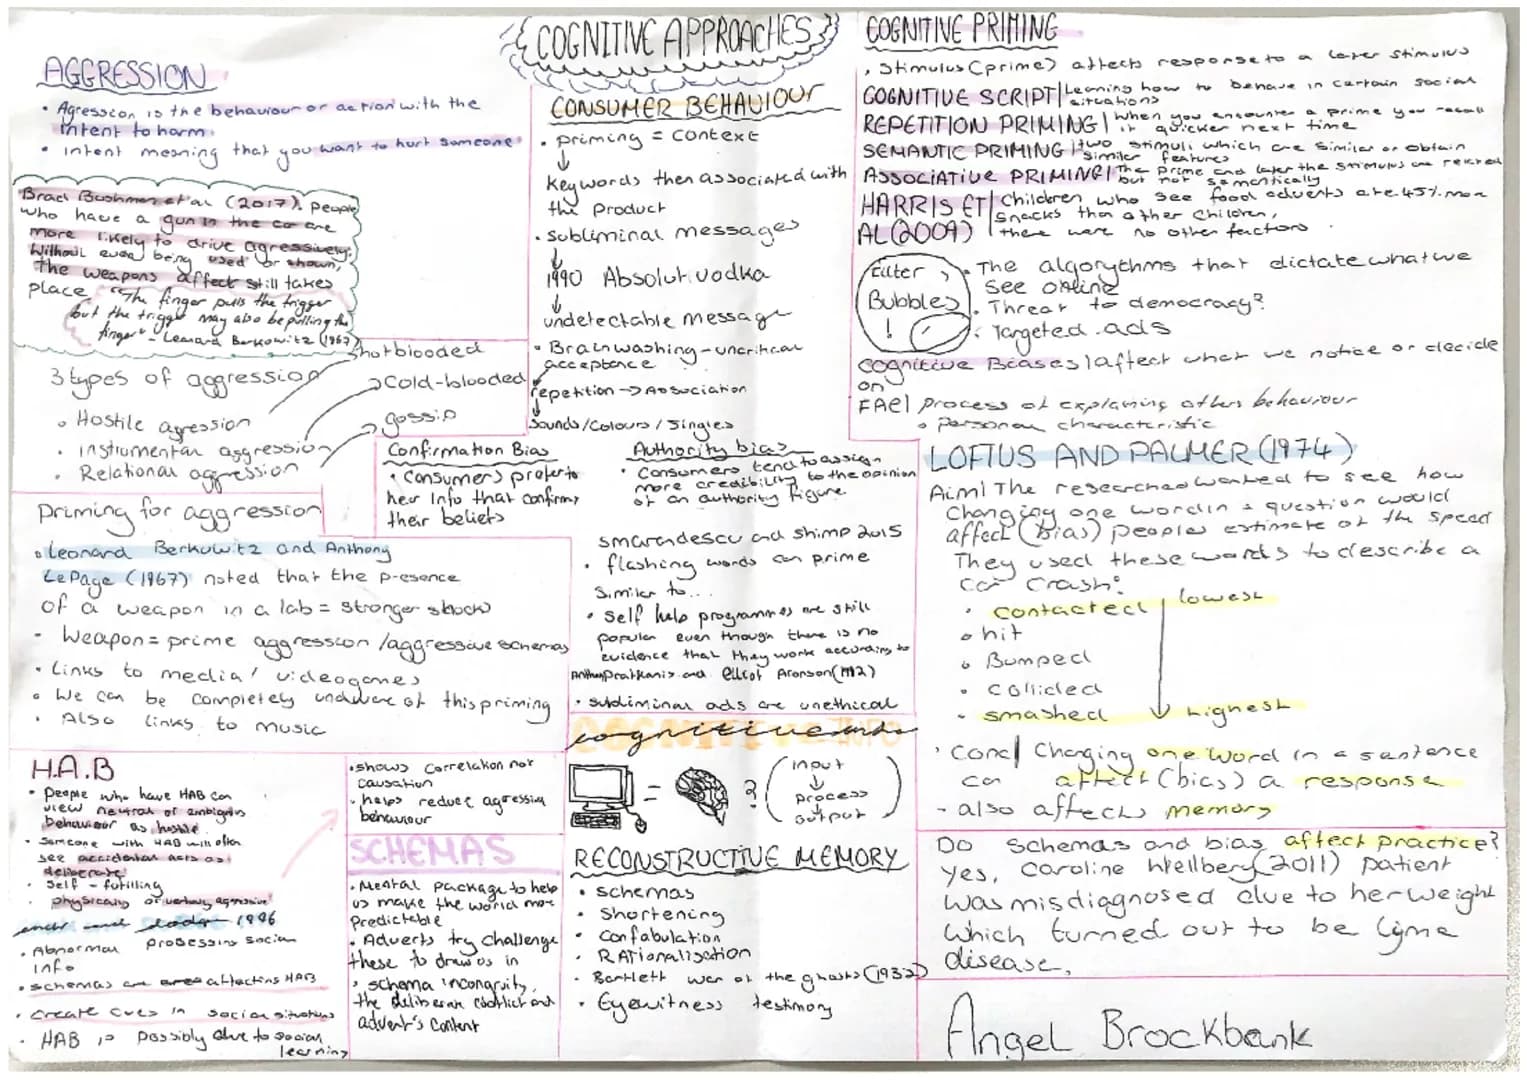 COGNITIVE APPROACHES
AGGRESSION
• Agression is the behaviour or action with the
intent to harm.
• intent meaning that you want to hurt someone
Brad Bushman et al (2017). People
who have a gun in the car are
more likely to drive agressively.
Without even being used or shown,
the weapons affect still takes
place. "The finger pulls the trigger
but the trigger may also be pulling the
finger" - Leonard Berkowitz (1967)
3 types of aggression
• Hostile agression
• instrumental aggression
• Relational aggression
hotblooded
Cold-blooded
gossip
Priming for aggression
• Leonard Berkowitz and Anthony
LePage (1967) noted that the presence
of a weapon in a lab = stronger shocks
- Weapon = prime aggression / aggressive schemas
• Links to media / videogames
• We can be completely unaware of this priming
• Also links to music
H.A.B
• People who have HAB can
view neutral or ambigous
behaviour as hostile.
• Someone with HAB will often
see accidental acts as
deliberate
• Self-fufilling
• physically or verbally aggressive
1996
• Abnormal processing social
info
• schemas are affecting HAB
• Create cues in social situations
• HAB is possibly due to social
learning
• shows correlation not
causation
• helps reduce agression
behaviour
SCHEMAS
• Mental package to help
us make the world more
predictable
• Adverts try challenge
these to draw us in
• schema incongruity,
the deliberate conflict and
advert's content
CONSUMER BEHAVIOUR
• priming = context
keywords then associated with
the product
• subliminal messages
1990 Absolut vodka
undetectable message
• Brainwashing - uncritical
acceptance
repetition → Association
Sounds / Colours / Jingles
Confirmation Bias
• Consumers prefer to
hear info that confirms
their beliefs
Authority bias
• Consumers tend to assign
more credibility to the opinion
of an authority figure
smarandescu and shimp 2015
• flashing words can prime
similar to...
• Self help programmes are still
popular even though there is no
evidence that they work according to
Anthony Pratkanis and Elliot Aronson (1992)
• subliminal ads are unethical
COGNITIVE INFO
= ? (input
process
output)
RECONSTRUCTIVE MEMORY
• schemas
• Shortening
• Confabulation
• RAtionalisation
• Bartlett war of the ghosts (1932)
• Eyewitness testimony
COGNITIVE PRIMING
• Stimulus (prime) affects response to a later stimulus
COGNITIVE SCRIPT | Learning how to behave in certain social
situations
REPETITION PRIMING | When you encounter a prime you recall
it quicker next time
SEMANTIC PRIMING | two stimuli which are similar or obtain
similar features
ASSOCIATIVE PRIMING | The prime and later the stimulus are related
but not semantically
HARRIS ET AL (2009) | Children who see food adverts ate 45% more
snacks than other children,
there were no other factors.
Filter
Bubbles
!
• The algorythms that dictate what we
see online
• Threat to democracy?
• Targeted ads
Cognitive Biases | affect what we notice or decide
on
FAE | process of explaining others behaviour
• personal characteristic
LOFTUS AND PALMER (1974)
Aim | The researchers wanted to see how
changing one word in a question would
affect (bias) peoples estimate of the speed
They used these words to describe a
car crash:
• contacted lowest
• hit
• Bumped
• collided
• smashed highest
• Conc | Changing one word in a sentence
can affect (bias) a response
- also affects memory
Do schemas and bias affect practice?
Yes, Caroline Wellbery (2011) patient
was misdiagnosed due to her weight
which turned out to be lyme
disease.
Angel Brockbank